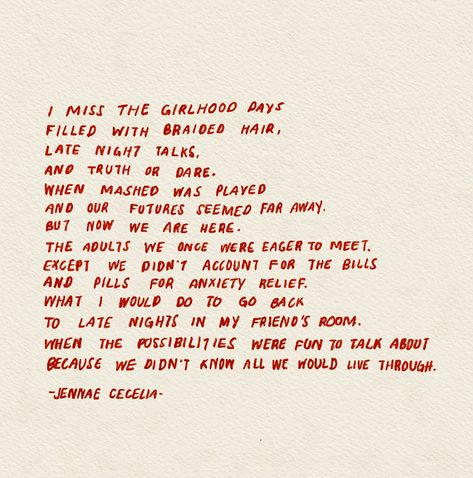 I MISS THE GIRLHOOD DAYS
FILLED WITH BRAIDED HAIR,
LATE NIGHT TALKS,
AND TRUTH OR DARE.
WHEN MASHED WAS PLAYED
AND OUR FUTURES SEEMED FAR AWAY.
BUT NOW WE ARE HERE.
THE ADULTS WE ONCE WERE EAGER TO MEET.
EXCEPT WE DIDN'T ACCOUNT FOR THE BILLS
AND PILLS FOR ANXIETY RELIEF.
WHAT I WOULD DO TO GO BACK
TO LATE NIGHTS IN MY FRIEND'S ROOM.
WHEN THE POSSIBILITIES WERE FUN TO TALK ABOUT
BECAUSE WE DIDN'T KNOW ALL WE WOULD LIVE THROUGH.
-JENNAE CECELIA-